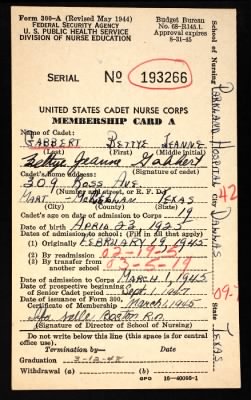 Form 300-A (Revised May 1944)
FEDERAL SECURITY AGENCY
U. S. PUBLIC HEALTH SERVICE
DIVISION OF NURSE EDUCATION
Budget Bureau
No. 68-R145.1.
Approval expires
8-31-45
SERIAL No 193266
UNITED STATES CADET NURSE CORPS
MEMBERSHIP CARD A
Name of Cadet:
GABBERT BETTYE JEANNE
(Last) (First) (Middle initial)
Bettye Jeanne Gabbert
(Signature of cadet)
309 ROSS AVE.
(Number and street, or R. F. D.)
TEXAS
(City) (State)
Cadet's age on date of admission to Corps 19
Date of birth APRIL 23, 1925
Dates of admission to school: (fill in all that apply)
(1) Originally FEBRUARY 19, 1945
(2) By readmission
(3) By transfer from another school
Date of admission to Corps MARCH 1, 1945
Date of prospective beginning of Senior Cadet period Sept. 1, 1947
Date of issuance of Form 300, Certificate of Membership March 1, 1945
R.N.
(Signature of Director of School of Nursing)
Do not write below this line (this space for central office use).
Termination by— Date
Graduation 3-12-48
GPO 16-40098-1
School of Nursing PARKLAND HOSPITAL City DALLAS State TEXAS
42
09-